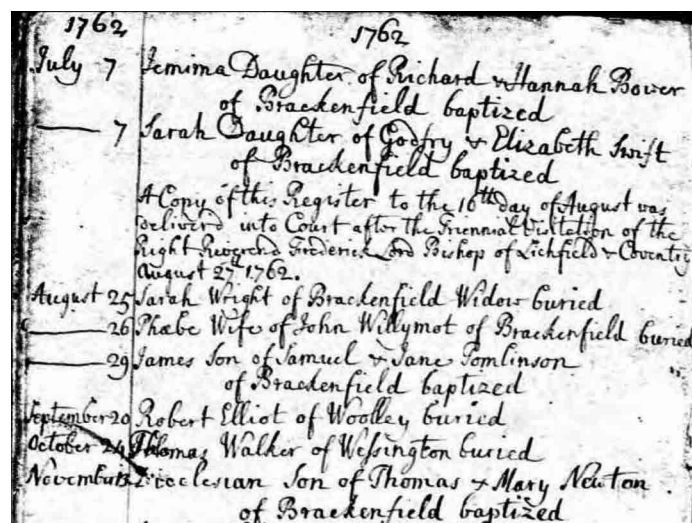 1762 1762
July 7 Jemima Daughter of Richard & Hannah Bower
of Brackenfield baptized
—— 7 Sarah Daughter of Godfry & Elizabeth Swift
of Brackenfield baptized
A Copy of this Register to the 16th day of August was
deliverd into Court after the Triennial Visitation of the
Right Reverend Frederick Lord Bishop of Lichfield & Coventry
August 27 1762.
August 25 Sarah Wright of Brackenfield Widow buried
—— 26 Phœbe Wife of John Willymot of Brackenfield buried
—— 29 James Son of Samuel & Jane Tomlinson
of Brackenfield baptized
September 20 Robert Elliot of Woolley buried
October 24 Thomas Walker of Wessington buried
November Son of Thomas & Mary Newton
of Brackenfield baptized